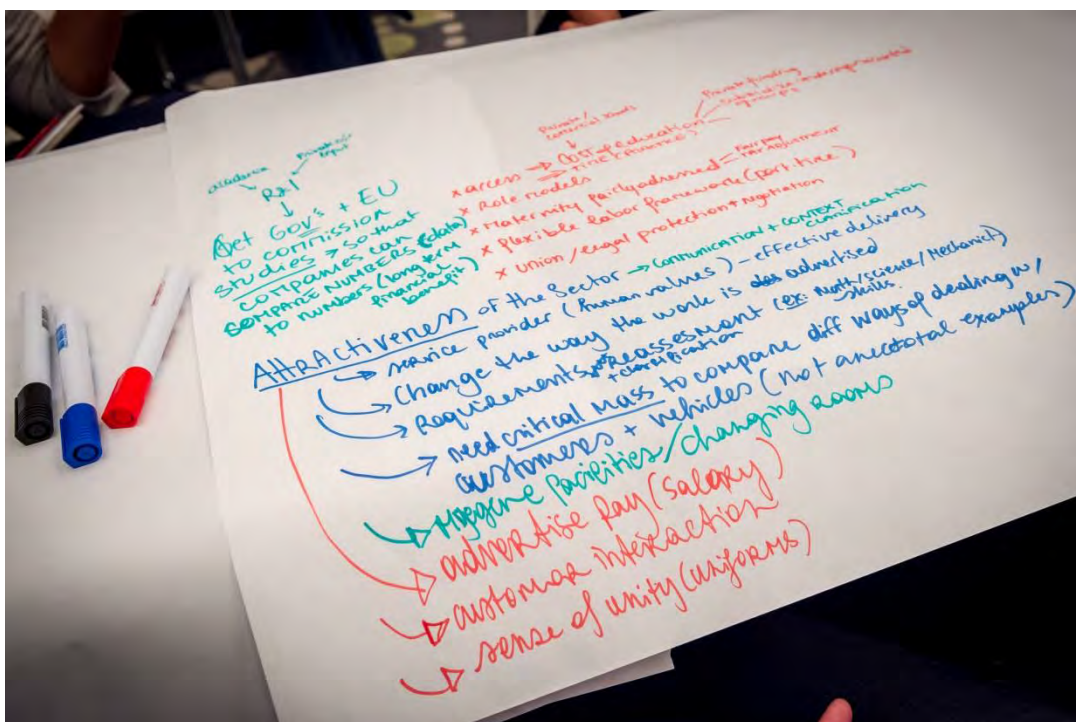 academia Private sec input
R&I
Get GOV's + EU
to commission
studies → so that
companies can
COMPARE NUMBERS (data)
to numbers (long term
financial
benefit)
Private /
comercial schools
Private funding
x access → COST of education
→ TIME
x Role models
x Maternity fairly adressed = Fair pay
x flexible labor framework (part-time)
x Union / legal protection + negotiation
Attractiveness of the Sector → COMMUNICATION + CONTEXT
→ service provider (human values) - effective delivery
→ Change the way the work is advertised
→ Requirements REASSESMENT (ex: Math/science/Mechanict)
+ classification skills
→ need critical mass to compare diff ways of dealing w/
customers + vehicles (not anecdotal examples)
→ Hygene facilities/changing rooms
→ advertise pay (salary)
→ customer interaction
→ sense of unity (uniforms)